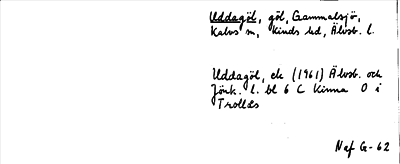 Uddagöl, göl, Gammalsjö,
Kalvs sn, Kinds hd, Älvsb. l.
Uddagöl, ek (1961) Älvsb. och
Jönk. l. bl 6 C Kinna O i
Trollås
Naf G-62